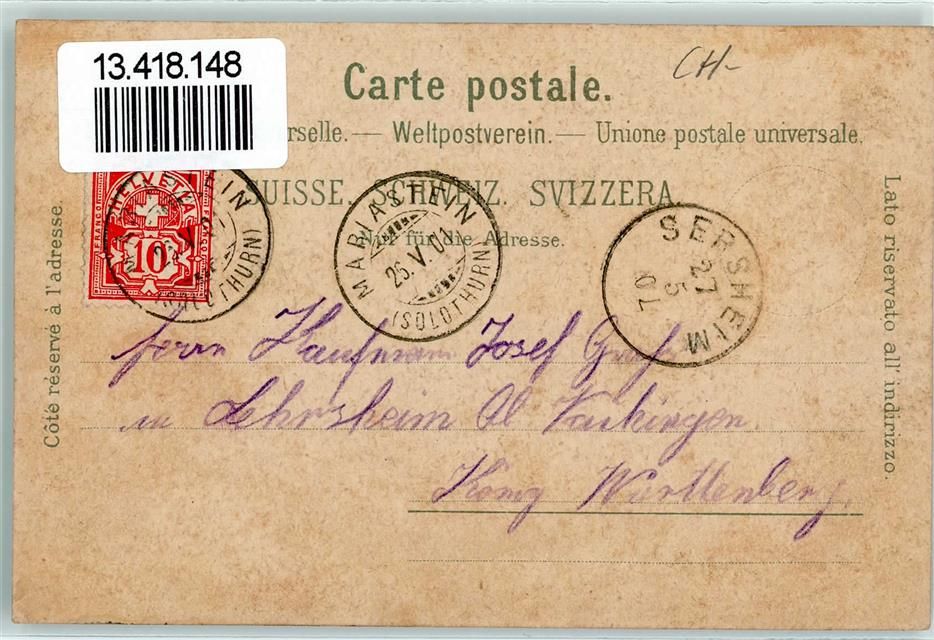 13.418.148
CH-
Carte postale.
rselle. — Weltpostverein. — Unione postale universale.
UISSE. SCHWEIZ. SVIZZERA
Nur für die Adresse.
Côté réservé à l'adresse.
Lato riservato all' indirizzo.
HELVETIA
FRANCO
10
MARIASTEIN
25.V.01
(SOLOTHURN)
SERSHEIM
27
5
01
Herrn Kaufmann Josef
in Sehrsheim Ob Vaihingen.
König Württenberg.